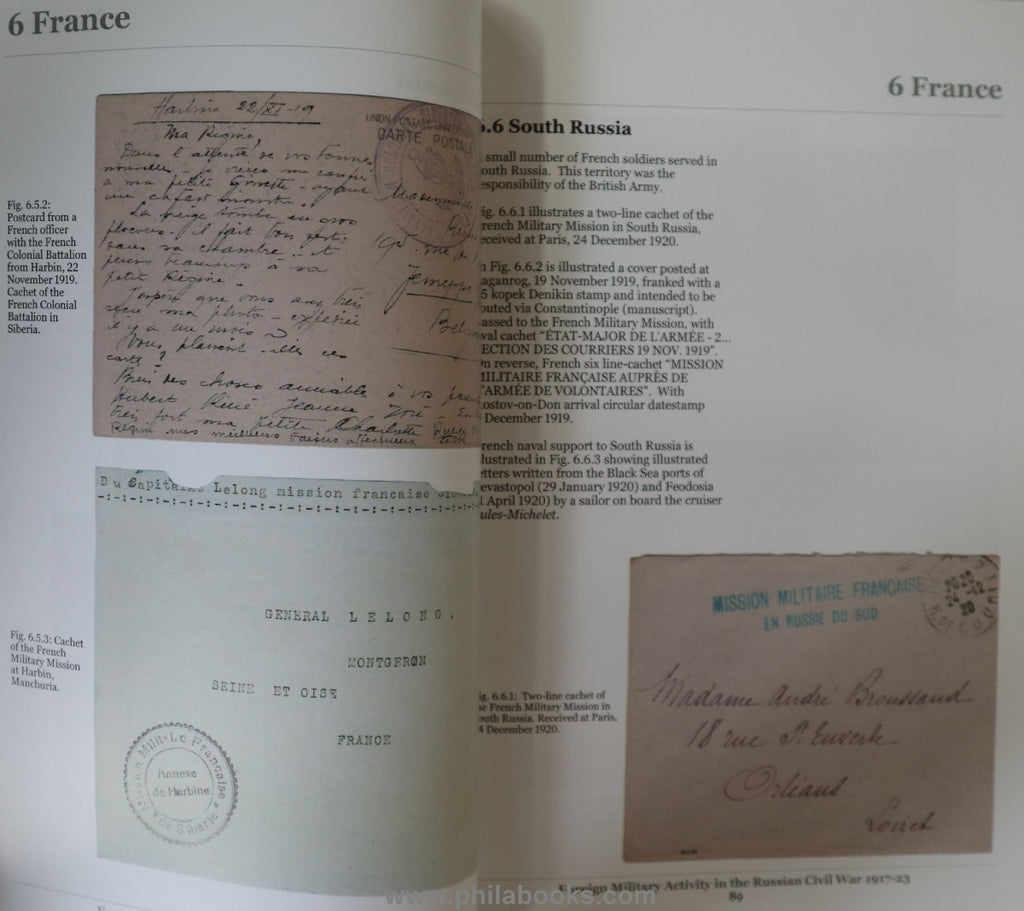 6 France
Fig. 6.5.2:
Postcard from a
French officer
with the French
Colonial Battalion
from Harbin, 22
November 1919.
Cachet of the
French Colonial
Battalion in
Siberia.
Harbine 22/XI-19
UNION POSTALE
CARTE POSTALE
Ma Régine,
Dans l'attente de vos bonnes
a ma petite
La neige tombe en gros
flocons - il fait bon
dans sa chambre - et
petit Régine.
J'espère que vous avez
ma photo -
il y a un mois
Vous plaisent-elles ces
carte?
Bien des choses aimable à vos
Hubert Jeanne
très fort ma petite Charlotte
Régine mes meilleurs baisers affectueux
195 rue de
Jemeppe
Du Capitaine Lelong mission francaise
GENERAL LELONG.
MONTGERON
SEINE ET OISE
FRANCE
Mission Militaire Française
Annexe
de Harbine
de Siberie
Fig. 6.5.3: Cachet
of the French
Military Mission
at Harbin,
Manchuria.
6 France
.6 South Russia
small number of French soldiers served in
outh Russia. This territory was the
esponsibility of the British Army.
ig. 6.6.1 illustrates a two-line cachet of the
rench Military Mission in South Russia,
eceived at Paris, 24 December 1920.
n Fig. 6.6.2 is illustrated a cover posted at
aganrog, 19 November 1919, franked with a
5 kopek Denikin stamp and intended to be
outed via Constantinople (manuscript).
assed to the French Military Mission, with
val cachet "ÉTAT-MAJOR DE L'ARMÉE - 2...
ECTION DES COURRIERS 19 NOV. 1919".
n reverse, French six line-cachet "MISSION
MILITAIRE FRANÇAISE AUPRÈS DE
'ARMÉE DE VOLONTAIRES". With
ostov-on-Don arrival circular datestamp
December 1919.
rench naval support to South Russia is
lustrated in Fig. 6.6.3 showing illustrated
etters written from the Black Sea ports of
evastopol (29 January 1920) and Feodosia
1 April 1920) by a sailor on board the cruiser
ules-Michelet.
ig. 6.6.1: Two-line cachet of
he French Military Mission in
outh Russia. Received at Paris,
4 December 1920.
MISSION MILITAIRE FRANÇAISE
EN RUSSIE DU SUD
24 -12
20
Madame André Broussaud
18 rue St Euverte
Orléans
Loiret
Foreign Military Activity in the Russian Civil War 1917-23
89
www.philabooks.com